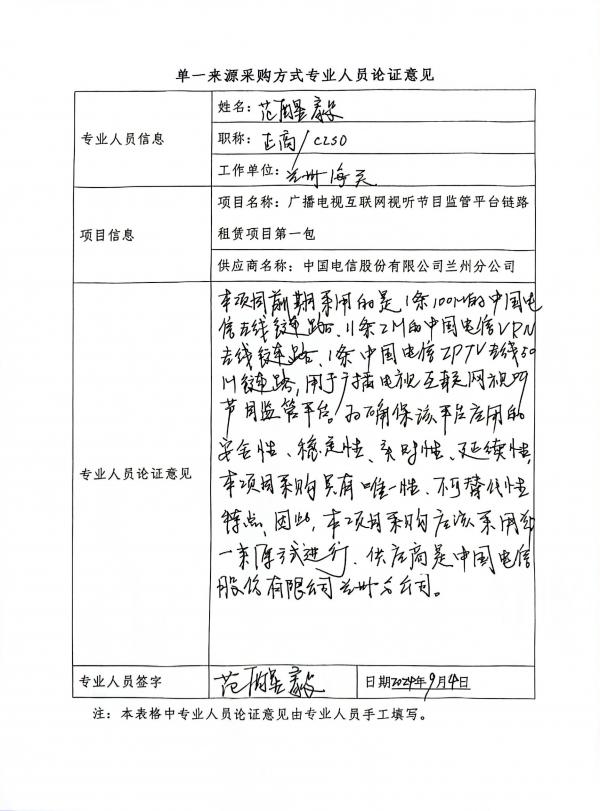 单一来源采购方式专业人员论证意见
专业人员信息
姓名：范醒毅
职称：正高/CISO
工作单位：兰州海天
项目信息
项目名称：广播电视互联网视听节目监管平台链路
租赁项目第一包
供应商名称：中国电信股份有限公司兰州分公司
专业人员论证意见
本项目前期采用的是1条100M的中国电
信专线链路、11条2M的中国电信VPN
专线链路、1条中国电信IPTV专线50
M链路，用于广播电视互联网视听
节目监管平台。为确保该平台应用的
安全性、稳定性、实时性、延续性，
本项目采购具有唯一性、不可替代性
特点，因此，本项目采购应该采用单
一来源方式进行，供应商是中国电信
股份有限公司兰州分公司。
专业人员签字
范醒毅
日期2024年9月4日
注：本表格中专业人员论证意见由专业人员手工填写。